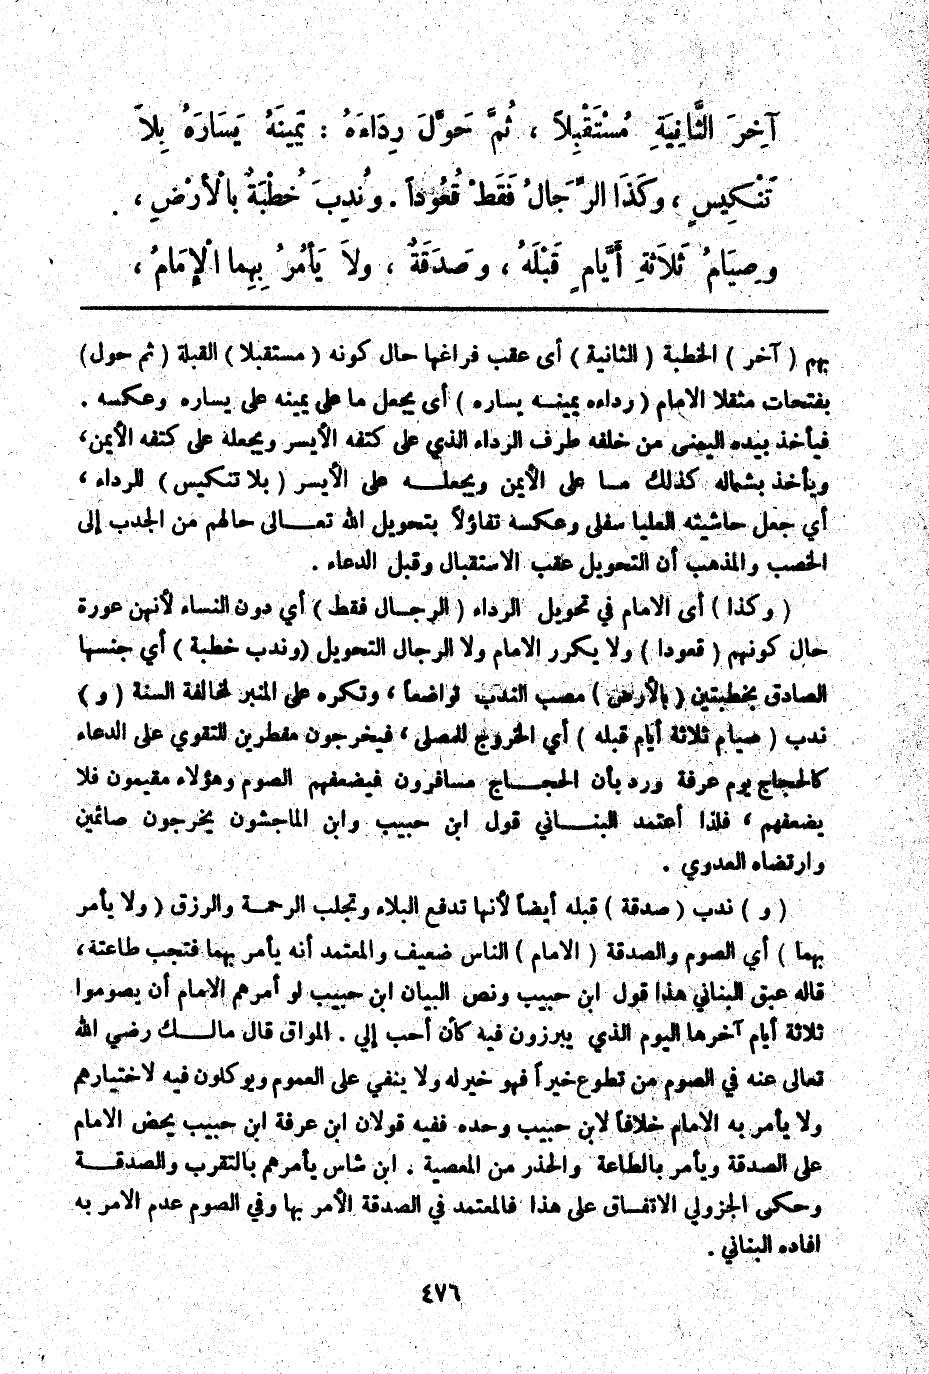 آخِرَ الثَّانِيَةِ مُسْتَقْبِلاً ، ثُمَّ حَوَّلَ رِدَاءَهُ : يَمِينَهُ يَسَارَهُ بِلاَ
تَنْكِيسٍ ، وكَذَا الرِّجَالُ فَقَطْ قُعُوداً . ونُدِبَ خُطْبَةٌ بالْأَرْضِ ،
وصِيَامُ ثَلاَثَةِ أَيَّامٍ قَبْلَهُ ، وصَدَقَةٌ ، ولاَ يَأمُرُ بِهِما الْإِمَامُ ،
بهم ( آخر ) الخطبة ( الثانية ) أى عقب فراغها حال كونه ( مستقبلا ) القبلة ( ثم حول )
بفتحات مثقلا الامام ( رداءه يمينه يساره ) أى يجعل ما على يمينه على يساره وعكسه .
فيأخذ بيده اليمنى من خلفه طرف الرداء الذي على كتفه الأيسر ويجعله على كتفه الأيمن،
ويأخذ بشماله كذلك ما على الأيمن ويجعله على الأيسر ( بلا تنكيس ) للرداء ،
أي جعل حاشيته العليا سفلى وعكسه تفاؤلاً بتحويل الله تعالى حالهم من الجدب إلى
الخصب والمذهب أن التحويل عقب الاستقبال وقبل الدعاء .
( وكذا ) أى الامام في تحويل الرداء ( الرجال فقط ) أي دون النساء لأنهن عورة
حال كونهم ( قعودا ) ولا يكرر الامام ولا الرجال التحويل (وندب خطبة ) أي جنسها
الصادق بخطبتين ( بالأرض ) مصب الندب تواضعاً ، وتكره على المنبر لمخالفة السنة ( و )
ندب ( صيام ثلاثة أيام قبله ) أي الخروج للمصلى ، فيخرجون مفطرين للتقوي على الدعاء
كالحجاج يوم عرفة ورد بأن الحجاج مسافرون فيضعفهم الصوم وهؤلاء مقيمون فلا
يضعفهم ، فلذا أعتمد البناني قول ابن حبيب وابن الماجشون يخرجون صائمين
وارتضاه العدوي .
( و ) ندب ( صدقة ) قبله أيضاً لأنها تدفع البلاء وتجلب الرحمة والرزق ( ولا يأمر
بهما ) أي الصوم والصدقة ( الامام ) الناس ضعيف والمعتمد أنه يأمر بهما فتجب طاعته،
قاله عبق البناني هذا قول ابن حبيب ونص البيان ابن حبيب لو أمرهم الامام أن يصوموا
ثلاثة أيام آخرها اليوم الذي يبرزون فيه كأن أحب إلي . المواق قال مالك رضي الله
تعالى عنه في الصوم من تطوع خيراً فهو خير له ولا ينفي على العموم ويوكلون فيه لاختيارهم
ولا يأمر به الامام خلافاً لابن حبيب وحده ففيه قولان ابن عرفة ابن حبيب يحض الامام
على الصدقة ويأمر بالطاعة والحذر من المعصية . ابن شاس يأمرهم بالتقرب والصدقة
وحكى الجزولي الاتفاق على هذا فالمعتمد في الصدقة الأمر بها وفي الصوم عدم الامر به
افاده البناني .
٤٧٦